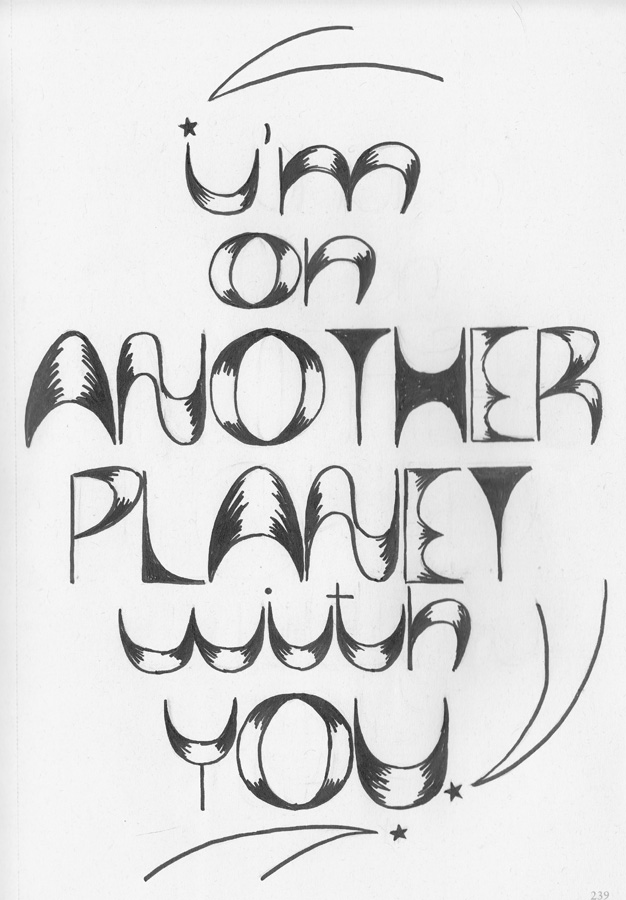 i'm
on
ANOTHER
PLANET
with
YOU
239